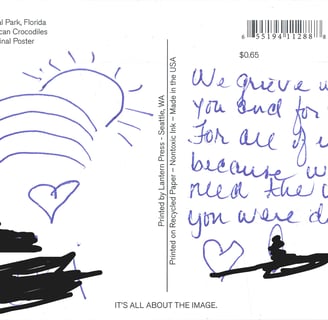 l Park, Florida
can Crocodiles
inal Poster
8 55194 11288 8
$0.65
Printed by Lantern Press - Seattle, WA
Printed on Recycled Paper – Nontoxic Ink – Made in the USA
We grieve w
you and for
For all of u
because w
need the w
you were d
IT'S ALL ABOUT THE IMAGE.